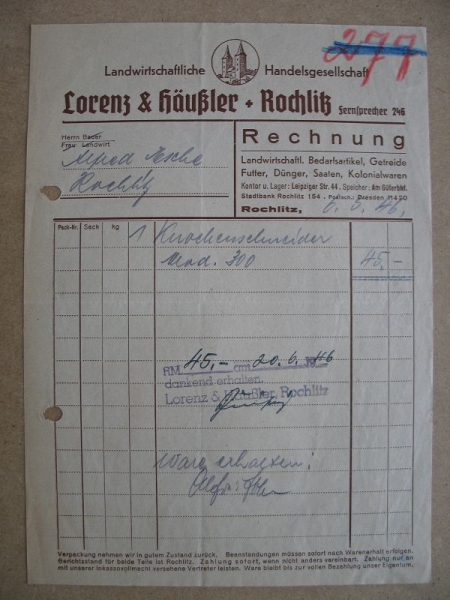 277
Landwirtschaftliche Handelsgesellschaft
Lorenz & Häußler + Rochlitz Fernsprecher 246
Herrn Bauer
Frau Landwirt
Alfred
Rochlitz
Rechnung
Landwirtschaftl. Bedarfsartikel, Getreide
Futter, Dünger, Saaten, Kolonialwaren
Kontor u. Lager: Leipziger Str. 44, Speicher: Am Güterbhf.
Stadtbank Rochlitz 154 . Postsch.: Dresden
Rochlitz, 6. 46.
Pack-Nr. Sack kg
1 Knochenschneider
Mod. 300 45,-
RM 45,- am 20.6. 46
dankend erhalten.
Lorenz & Häußler, Rochlitz
Ware erhalten:
Verpackung nehmen wir in gutem Zustand zurück. Beanstandungen müssen sofort nach Warenerhalt erfolgen.
Gerichtsstand für beide Teile ist Rochlitz. Zahlung sofort, wenn nicht anders vereinbart. Zahlung nur an
mit unserer Inkassovollmacht versehene Vertreter leisten. Ware bleibt bis zur vollen Bezahlung unser Eigentum.